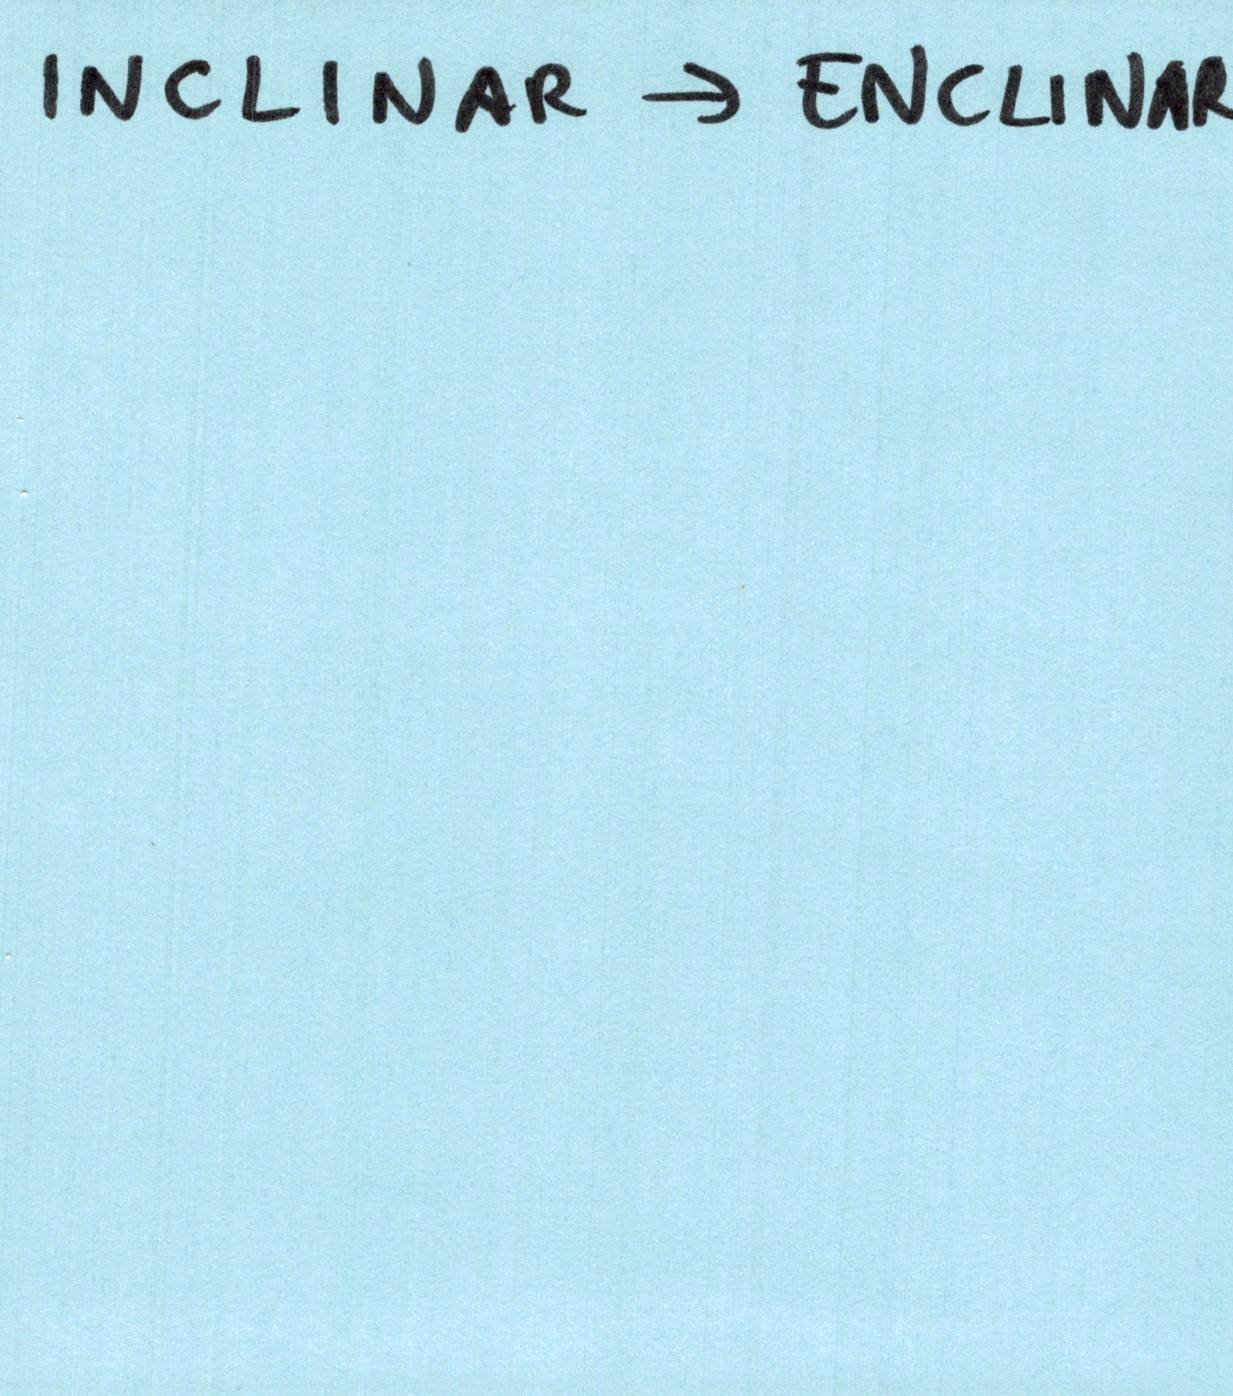 INCLINAR → ENCLINAR